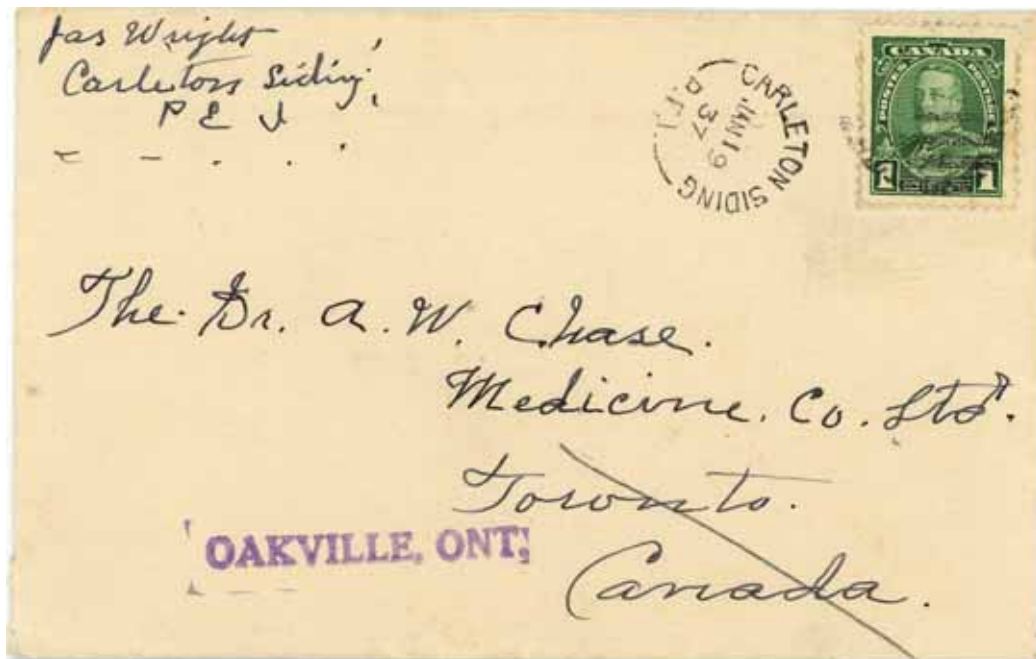 Jas Wright
Carleton Siding,
P E I
CARLETON SIDING
JAN 19
37
P.E.I.
CANADA
POSTES POSTAGE
1 1
The. Dr. A. W. Chase.
Medicine. Co. Ltd.
Toronto.
Canada.
OAKVILLE, ONT,